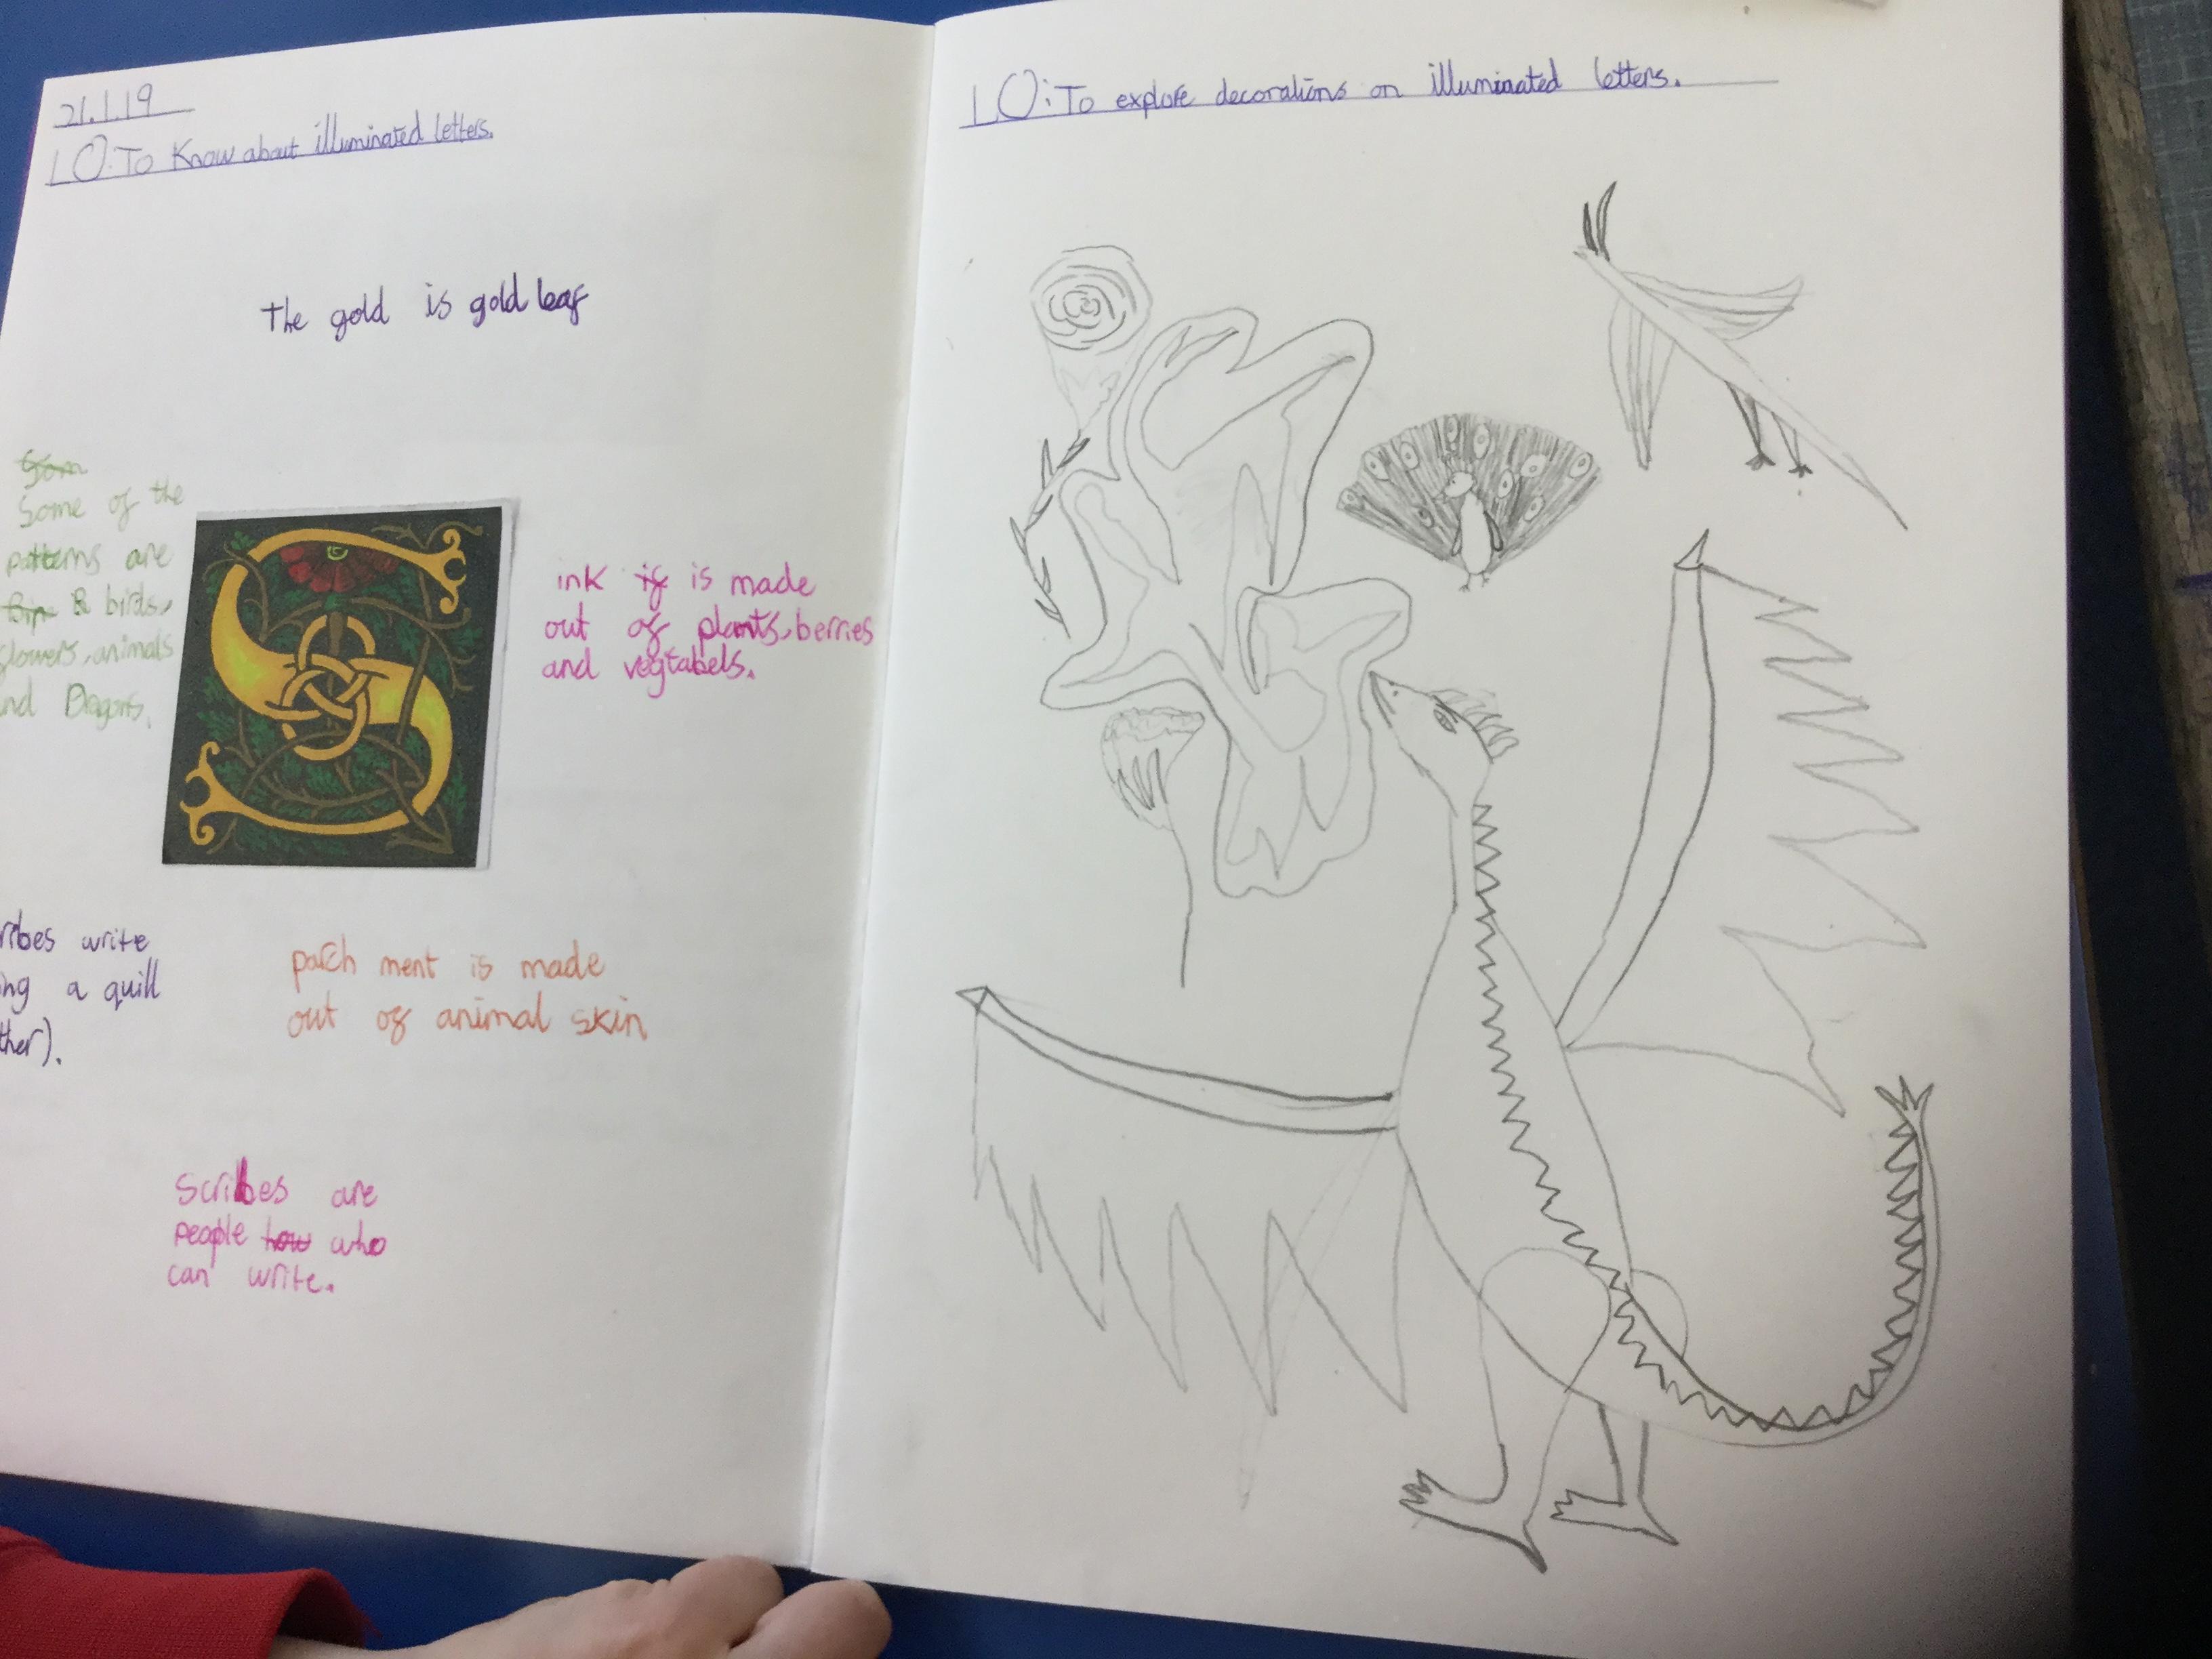 21.1.19
LO: To Know about illuminated letters.
The gold is gold leaf
Som
Some of the
patterns are
B birds,
flowers, animals
and Dragons.
ink if is made
out of plants, berries
and vegtabels.
ribes write
ing a quill
ther).
parch ment is made
out of animal skin
Scribes are
people how who
can write.
LO: To explore decorations on illuminated letters.